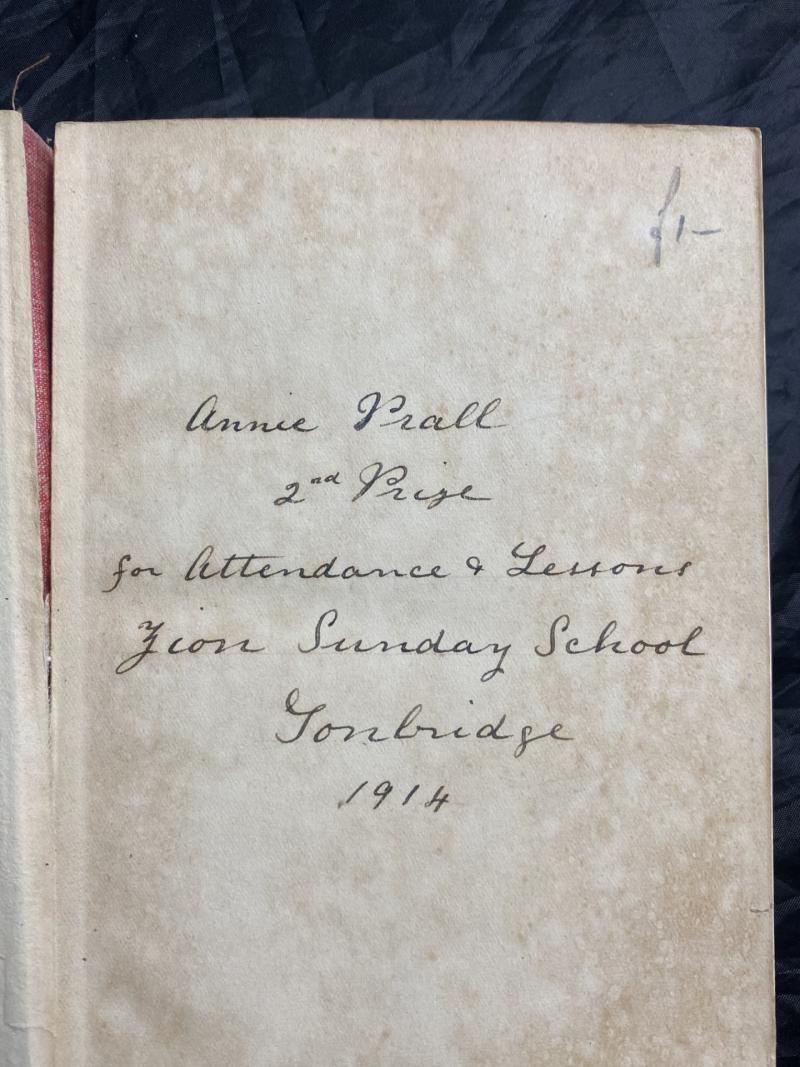 £1-
Annie Prall
2nd Prize
for Attendance & Lessons
Zion Sunday School
Tonbridge
1914